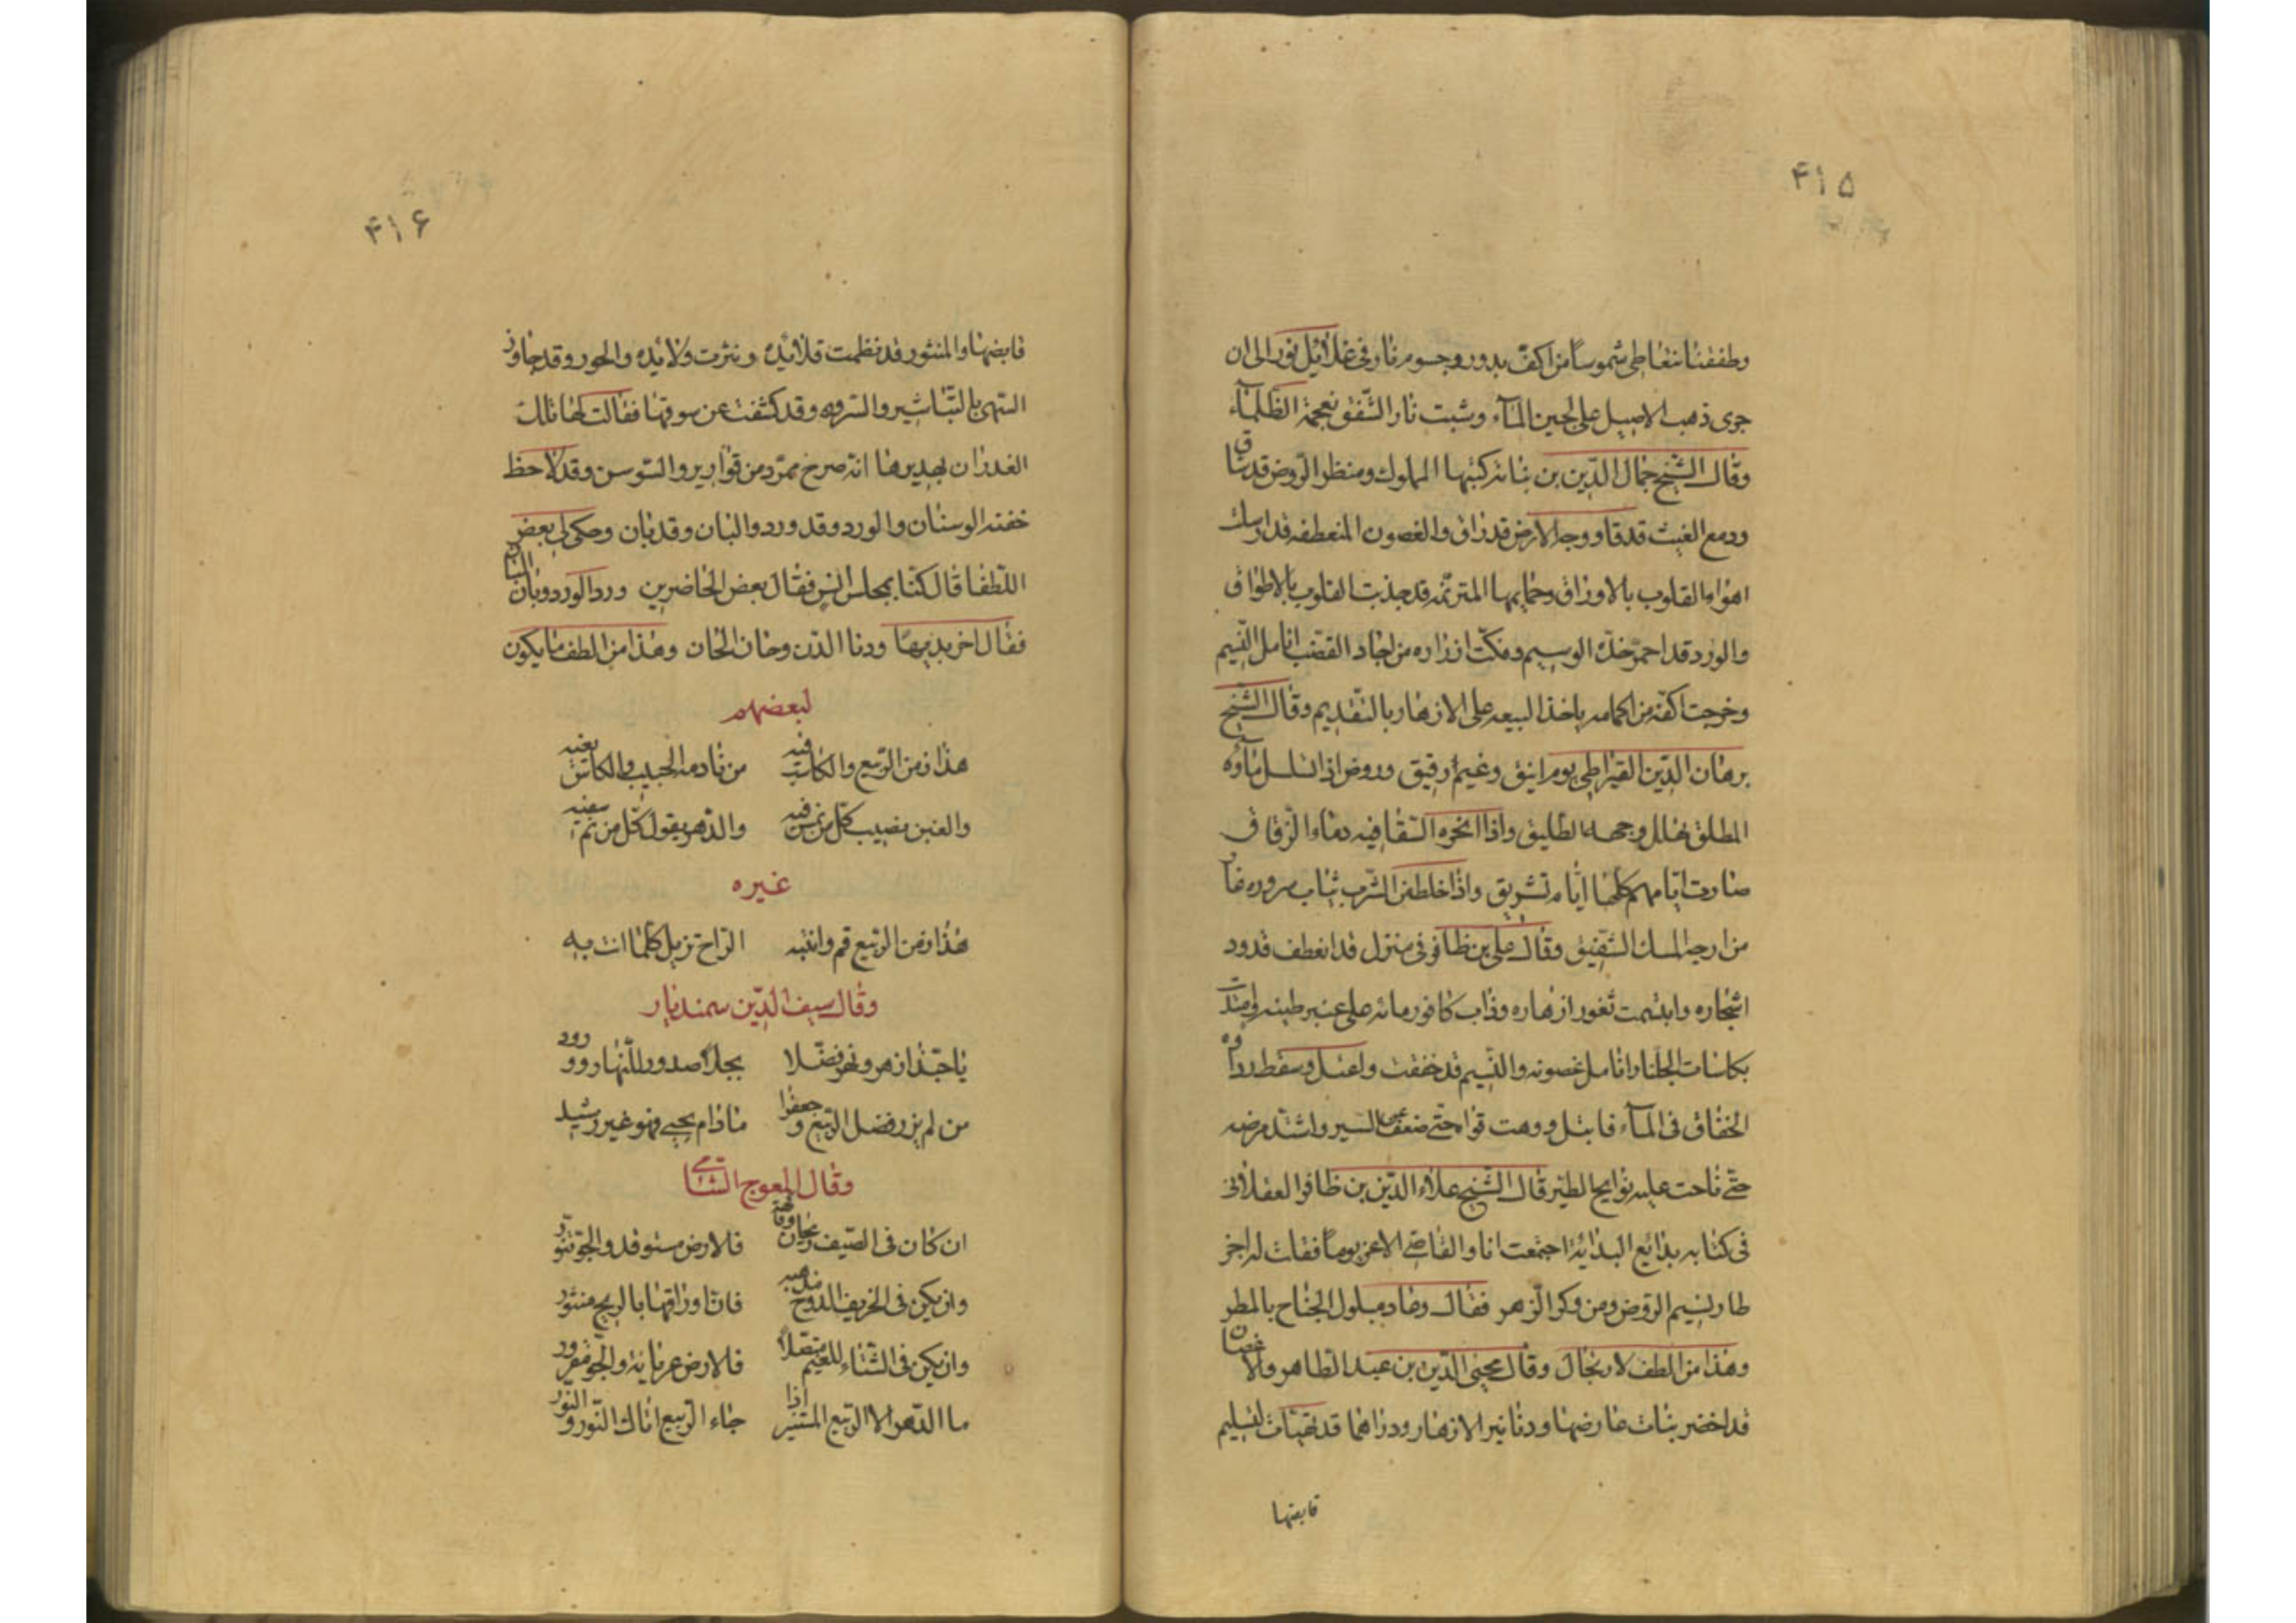 ۴۱۵
وطفقنا نتعاطى شموسا من اكف بدور وجسوم نار فى غلائل نور الى ان
جرى ذهب الاصيل على لجين المآء وشبت نار الشفق بفحمة الظلمآء
وقال الشيخ جمال الدين بن نباته كتبها المملوك ومنظر الروض قد شاق
ودمع الغيث قد رقا ووجه الارض قد راق والغصون المنعطفه قد ارسلت
اهواء القلوب بالاوراق وحمايمها المترنمه قد جذبت القلوب بالاطواق
والورد قد احمر خده الوسيم وفكت ازراره من اجياد القضب انامل النسيم
وخرجت اكفه من اكمامه ياخذ البيعه على الازهار بالتقديم وقال الشيخ
برهان الدين القيراطى يوم انيق وغيم رقيق وروض اذا تسلسل ماؤه
المطلق تهلل وجهه الطليق واذا نحره السقا فيه دماء الزقاق
صارت ايامهم كلها ايام تشريق واذا خلط من الشرب ثياب سروره غار
من ارجه المسك الشقيق وقال على بن ظافر فى منزل قد انعطف قدود
اشجاره وابتسمت ثغور ازهاره وذاب كافور مائه على عنبر طينه وامتدت
بكاسات الجلنار انامل غصونه والنسيم قد خفقت واعتل وسقط رداؤه
الخفاق فى المآء فابتل ووهت قواه حتى ضعف عن السير واشتد مرضه
حتى ناحت عليه نوايح الطير قال الشيخ علاء الدين بن ظافر العقلانى
فى كتابه بدائع البدائه اجتمعت انا والقاضى الاعز يوما فقلت له اجز
طار نسيم الروض ومن وكر الزهر فقال وجاء مبلول الجناح بالمطر
وهذا من الطف الارتجال وقال محيى الدين بن عبد الظاهر والاغصان
قد اخضر نبات عارضها ودنانير الازهار ودراهما قد تهيات لتسليم
قابضها
۴۱۶
قابضها والمنثور قد نظمت قلائده ونثرت ولائده والحور وقد جاوز
السهى بالتباشير والسرو وقد كشفت عن سوقها فقالت لها تلك
الغدران بهديرها انه صرح ممرد من قوارير والسوسن وقد لاحظ
خفته الوسنان والورد وقد ورد والبان وقد بان وحكى لى بعض
اللطفا قال كنا بمجلس انس فقال بعض الحاضرين ورد الورد وبان البان
فقال اخر بديها ودنا الدن وحان الحان وهذا من الطف ما يكون
لبعضهم
هذا زمن الربيع والكاسب فيه من نادمه الحبيب والكاس بفيه
والغبن نصيب كل من نمس فيه والدهر يقول كل من نم سفيه
غيره
هذا زمن الربيع قم وانتبه الراح تزيل كلما انت به
وقال سيف الدين سمندیار
يا حبذا زهر ونهر فضلا بجلا صدور للنهار وورود
من لم يزر فضل الربيع وجعفرا ما دام يحيى فهو غير رشيد
وقال المعوج الشامى
ان كان فى الصيف ريحان وفاكهة فالارض مستوقد والجو تنور
وان يكن فى الخريف الدوح مذهبه فان اوراقها بالريح منثور
وان يكن فى الشتاء للغيم متصلا فالارض عريانة والجو مقرور
ما الدهر الا الربيع المستنير اذا جاء الربيع اتاك النور والنور